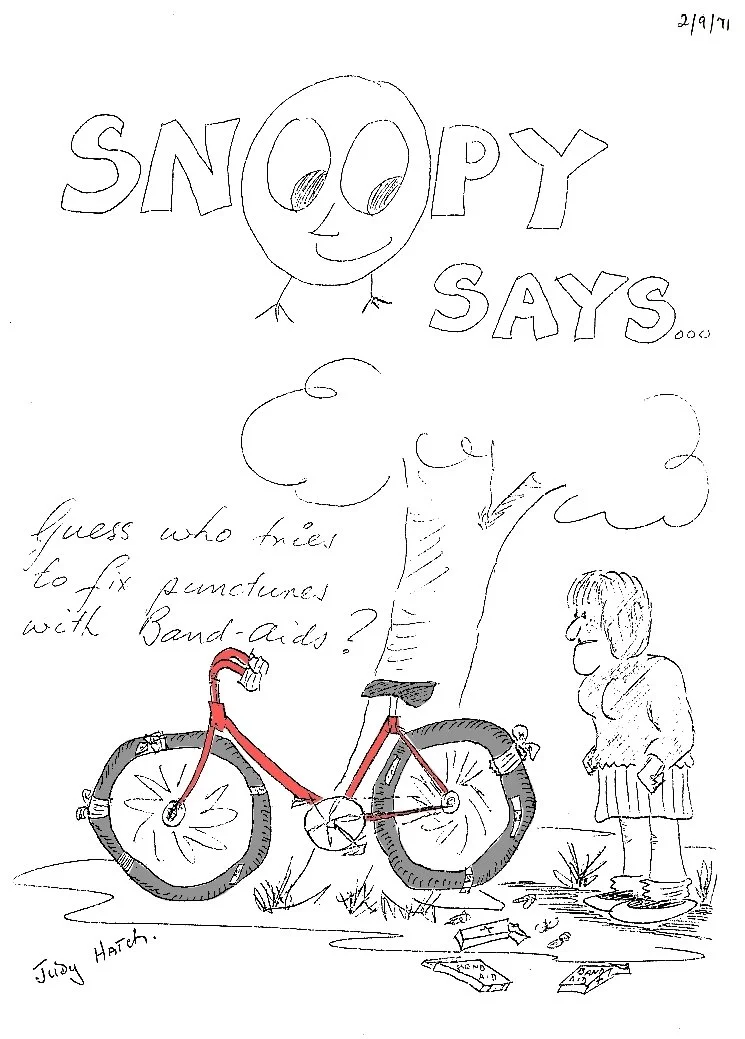 2/9/71
SNOOPY
SAYS...
Guess who tries
to fix punctures
with Band-Aids?
Judy Hatch.
BAND
AID
BAND
AID +